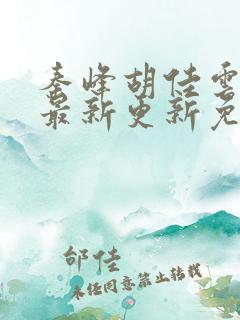 秦峰胡佳雲
最新更新免
邰佳
未经同意禁止转载